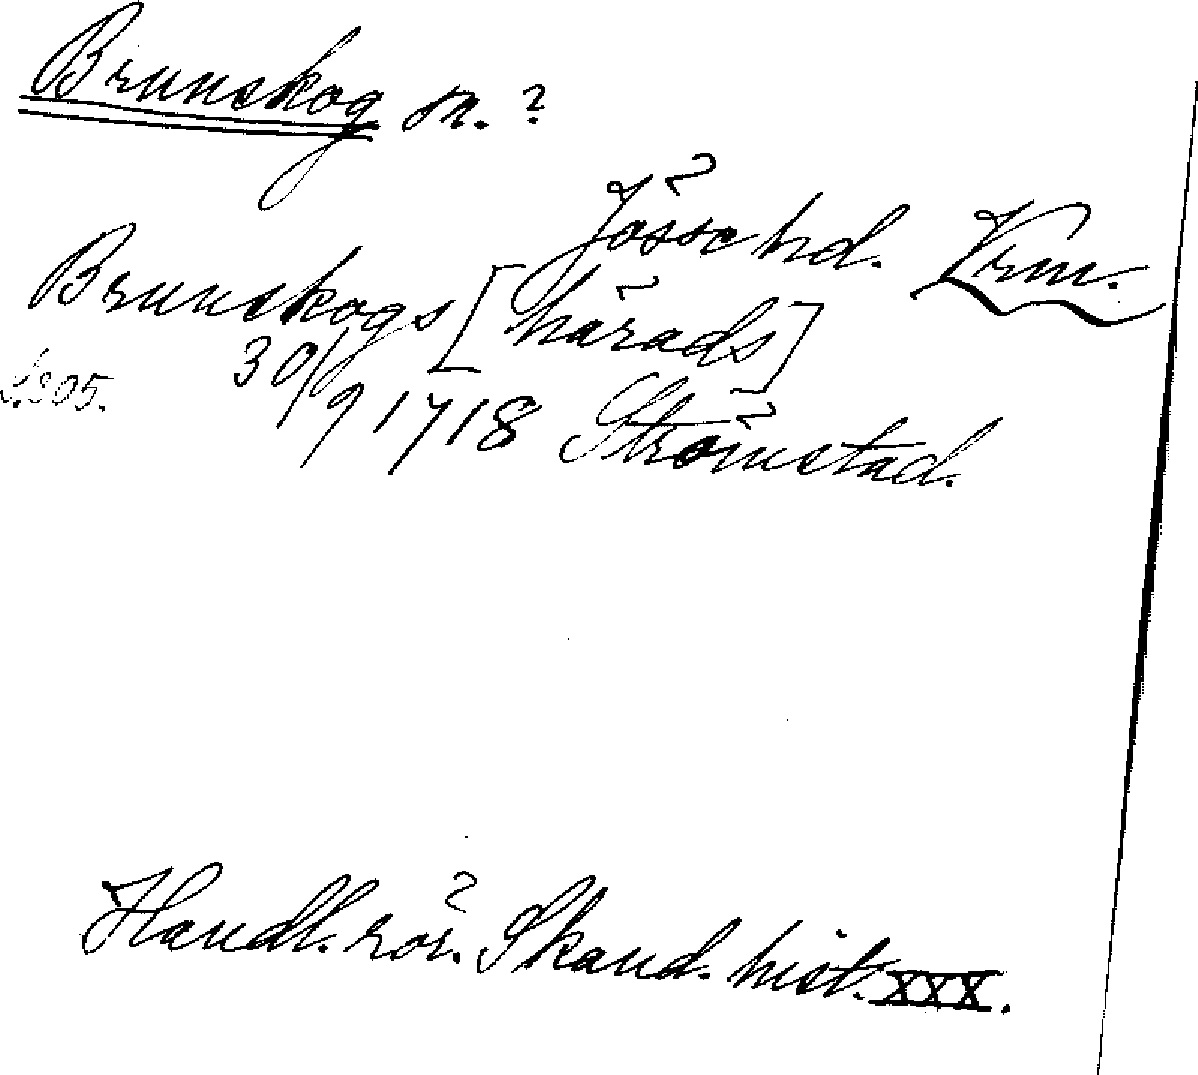 Brunskog sn. ?
Jösse hd. Vrm.
Brunskogs [härads]
S. 305. 30/9 1718 Strömstad.
Handl. rör. Skand. hist. XXX.